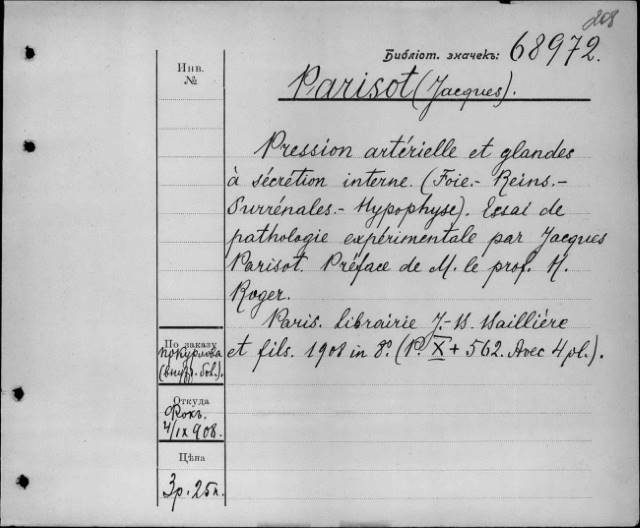 208
Библіот. значекъ: 68972.
Инв.
№
Parisot (Jacques).
Pression artérielle et glandes
à sécrétion interne. (Foie.- Reins.-
Surrénales.- Hypophyse). Essai de
pathologie expérimentale par Jacques
Parisot. Préface de M. le prof. H.
Roger.
Paris. librairie J.-B. Baillière
et fils. 1908 in 8º. (P. X + 562. Avec 4 pl.).
По заказу
Откуда
Фокъ.
4/IX 908.
Цѣна
3р. 25к.